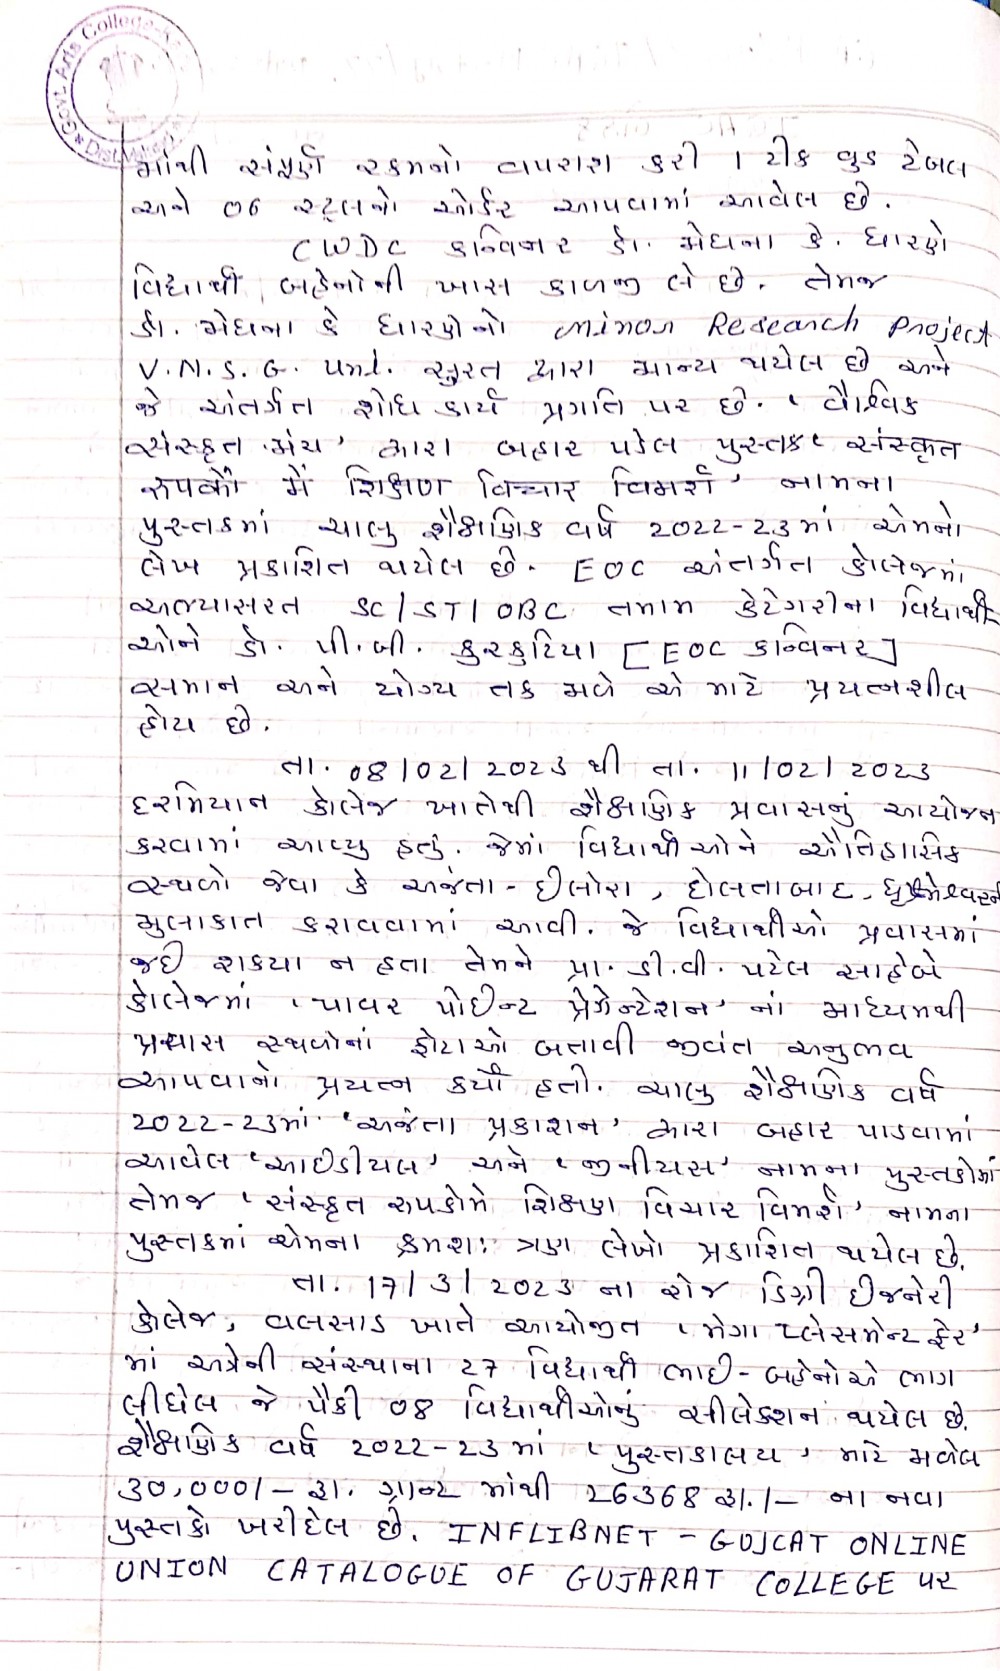 Govt. Arts College
Dist.
માંથી સંપૂર્ણ રકમનો વપરાશ કરી 1 ટીક વુડ ટેબલ
અને ૦6 સ્ટુલનો ઓર્ડર આપવામાં આવેલ છે.
CWDC કન્વિનર ડૉ. મેઘના કે. ધારણે
વિદ્યાર્થી બહેનોની ખાસ કાળજી લે છે. તેમજ
ડૉ. મેઘના કે ધારણેનો Minor Research Project
V.N.S.G. Uni. સુરત દ્વારા માન્ય થયેલ છે અને
જે અંતર્ગત શોધ કાર્ય પ્રગતિ પર છે. 'વૈશ્વિક
સંસ્કૃત મંચ' દ્વારા બહાર પડેલ પુસ્તક 'સંસ્કૃત
રુપકોં મેં શિક્ષણ વિચાર વિમર્શ' નામના
પુસ્તકમાં ચાલુ શૈક્ષણિક વર્ષ 2022-23માં એમનો
લેખ પ્રકાશિત થયેલ છે. EOC અંતર્ગત કોલેજમાં
અભ્યાસરત SC/ST/OBC તમામ કેટેગરીના વિદ્યાર્થી-
ઓને ડૉ. પી.બી. કુરકુટિયા [EOC કન્વિનર]
સમાન અને યોગ્ય તક મળે એ માટે પ્રયત્નશીલ
હોય છે.
તા. 08/02/2023 થી તા. 11/02/2023
દરમિયાન કોલેજ ખાતેથી શૈક્ષણિક પ્રવાસનું આયોજન
કરવામાં આવ્યુ હતું. જેમાં વિદ્યાર્થીઓને ઐતિહાસિક
સ્થળો જેવા કે અજંતા-ઈલોરા, દોલતાબાદ,
મુલાકાત કરાવવામાં આવી. જે વિદ્યાર્થીઓ પ્રવાસમાં
જઈ શકયા ન હતા તેમને પ્રા. ડી.વી. પટેલ સાહેબે
કોલેજમાં 'પાવર પોઈન્ટ પ્રેઝેન્ટેશન' નાં માધ્યમથી
પ્રવાસ સ્થળોનાં ફોટાઓ બતાવી જીવંત અનુભવ
આપવાનો પ્રયત્ન કર્યો હતો. ચાલુ શૈક્ષણિક વર્ષ
2022-23માં 'અજંતા પ્રકાશન' દ્વારા બહાર પાડવામાં
આવેલ 'આઈડીયલ' અને 'જીનીયસ' નામના પુસ્તકોમાં
તેમજ 'સંસ્કૃત રુપકોમે શિક્ષણ વિચાર વિમર્શ' નામના
પુસ્તકમાં એમના ક્રમશઃ ત્રણ લેખો પ્રકાશિત થયેલ છે.
તા. 17/3/2023 ના રોજ ડિગ્રી ઈજનેરી
કોલેજ, વલસાડ ખાતે આયોજીત 'મેગા પ્લેસમેન્ટ ફેર'
માં અત્રેની સંસ્થાના 27 વિદ્યાર્થી ભાઈ-બહેનોએ ભાગ
લીધેલ જે પૈકી 08 વિદ્યાર્થીઓનું સીલેક્શન થયેલ છે.
શૈક્ષણિક વર્ષ 2022-23માં 'પુસ્તકાલય' માટે મળેલ
30,000/- રૂા. ગ્રાન્ટ માંથી 26368 રૂા./- ના નવા
પુસ્તકો ખરીદેલ છે. INFLIBNET - GUJCAT ONLINE
UNION CATALOGUE OF GUJARAT COLLEGE પર